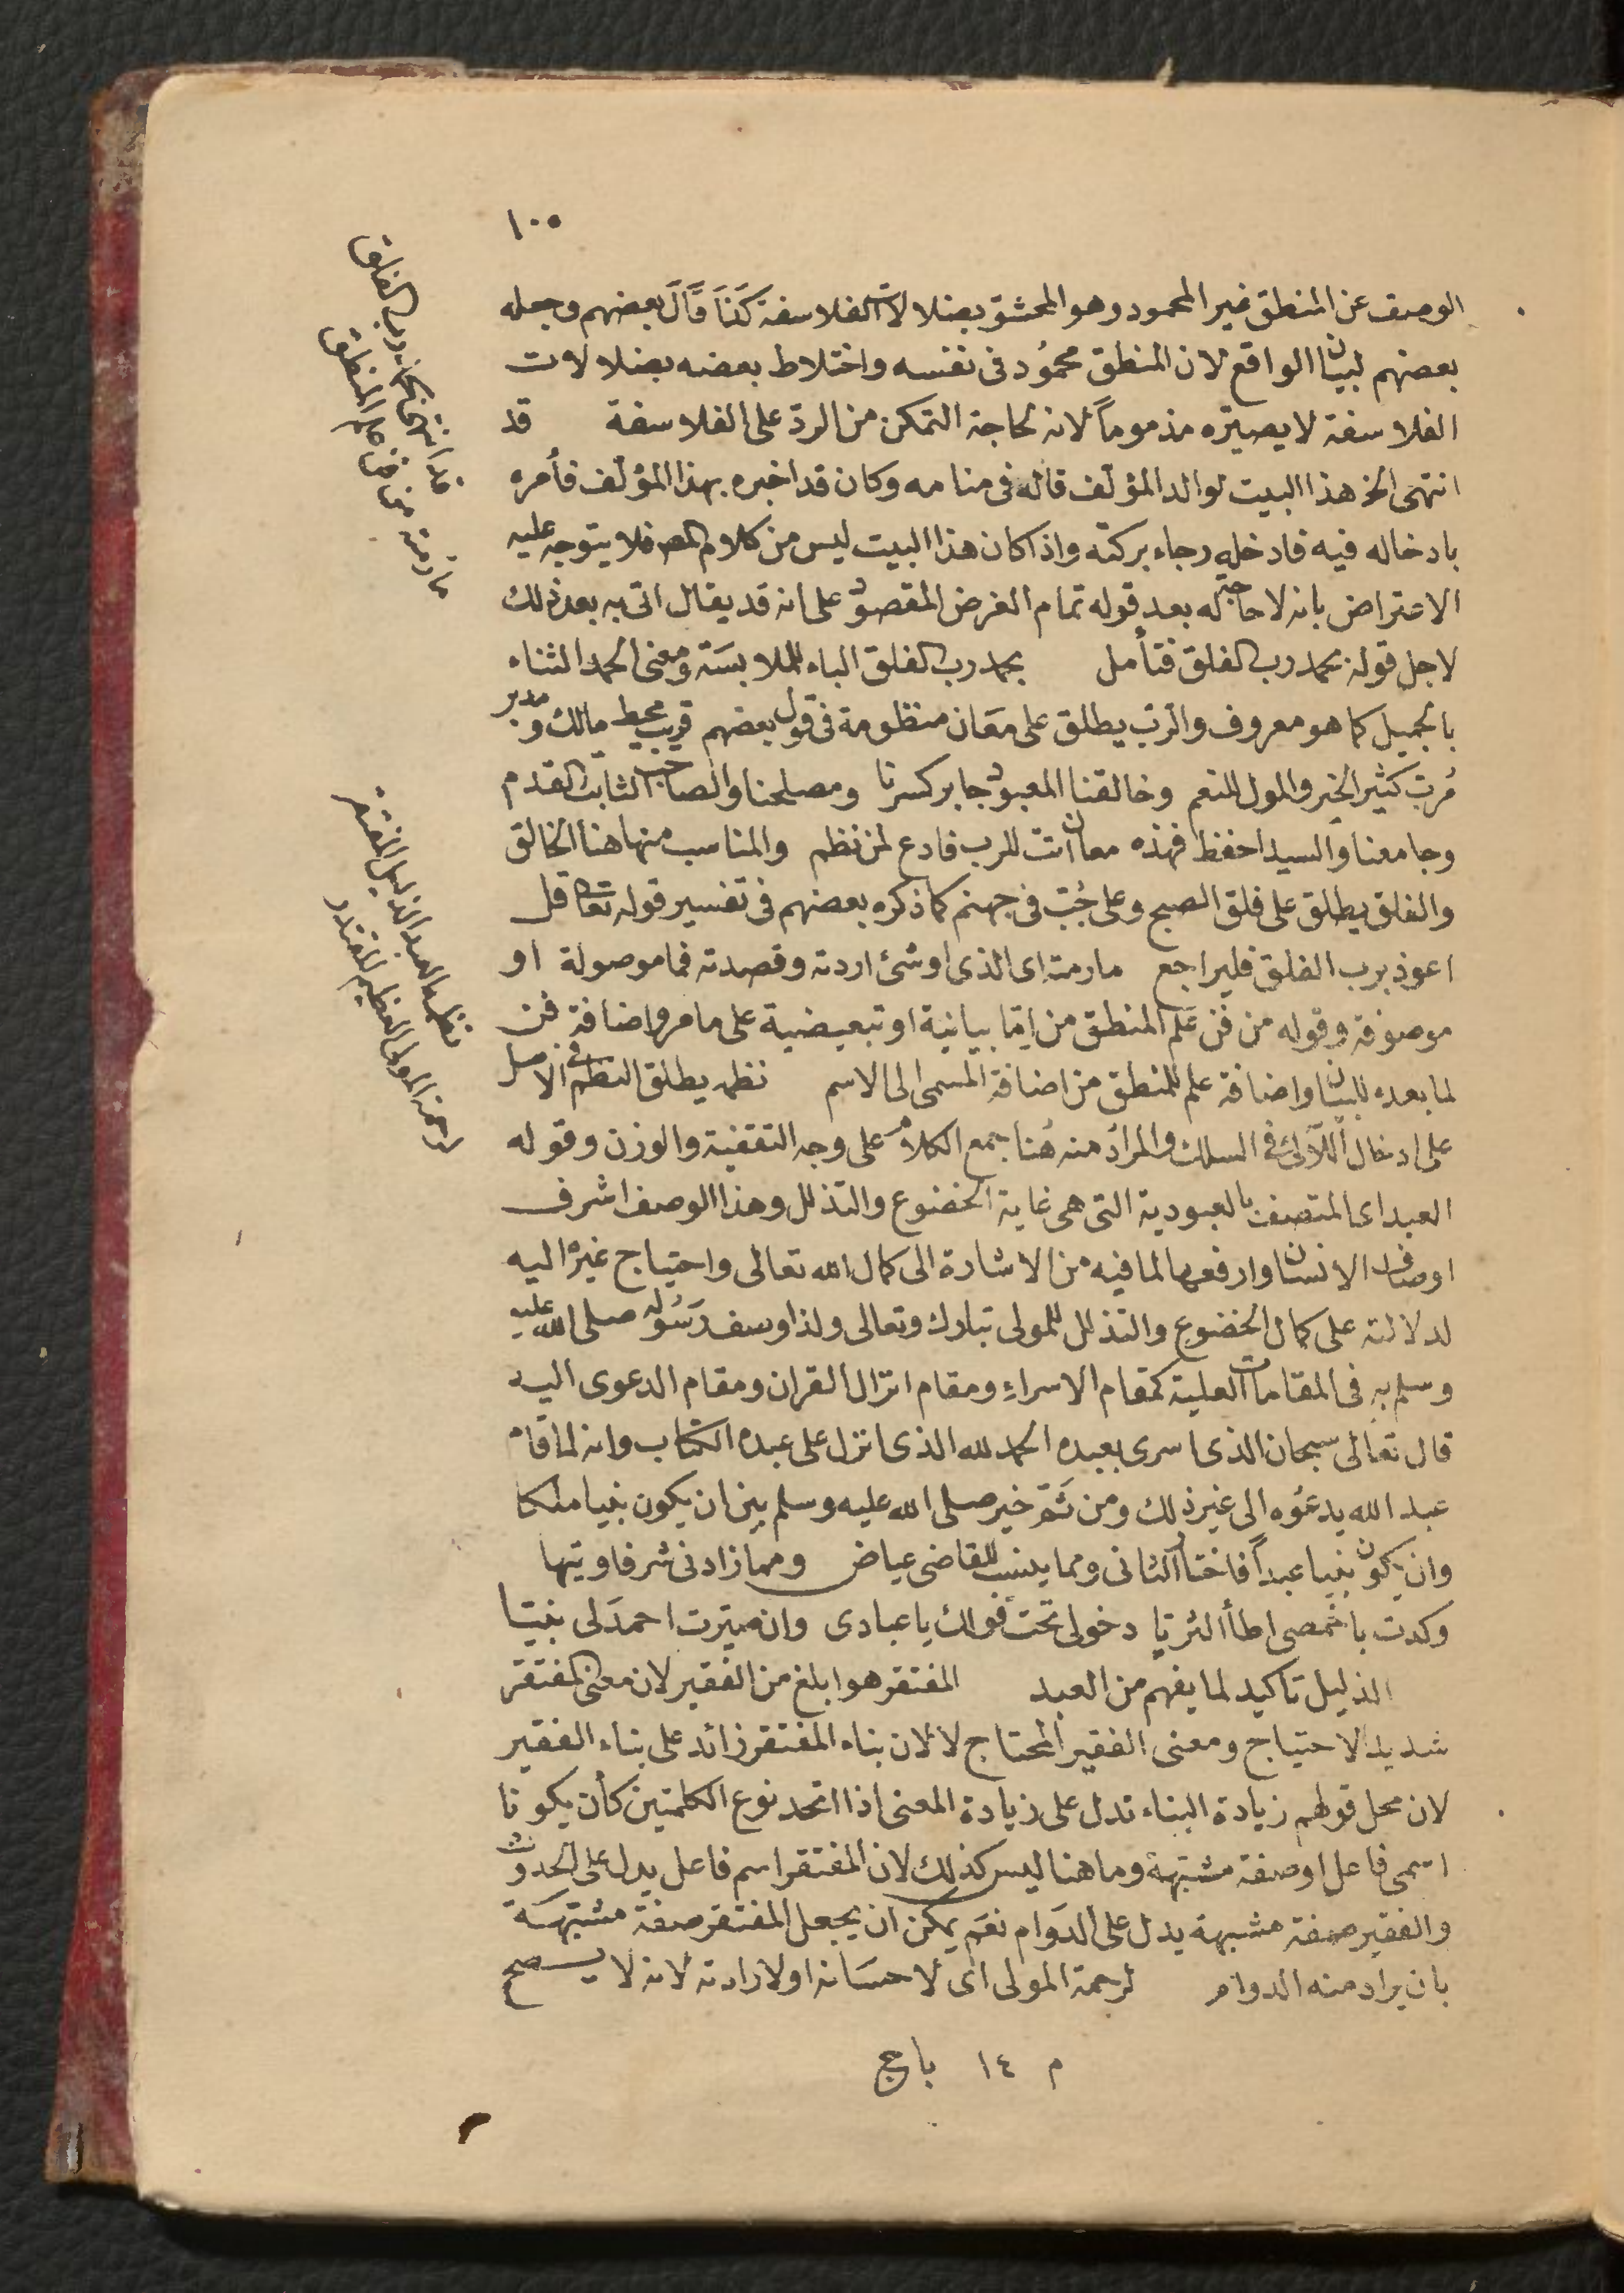 ١٠٥
الوصف عن المنطق غير المحمود وهو المحشو بضلالات الفلاسفة كَذَا قَالَ بعضهم وجعله
بعضهم لبيان الواقع لان المنطق محمُود فى نفسه واختلاط بعضه بضلالات
الفلاسفة لا يصيّره مذموماً لانه لحاجة التمكن من الردّ على الفلاسفة قد
انتهى الخ هذا البيت لوالد المؤلف قاله فى منامه وكان قد اخبره بهذا المؤلف فأمره
بادخاله فيه فادخله رجاء بركته واذا كان هذا البيت ليس من كلام المص فلا يتوجه عليه
الاعتراض بانه لا حاجة له بعد قوله تمام الغرض المقصود على انه قد يقال اتى به بعد ذلك
لاجل قوله بحمد رب الفلق فتأمل بحمد رب الفلق الباء للملابسَة ومعنى الحمد الثناء
بالجميل كما هو معروف والرّب يطلق على معَان منظومة فى قول بعضهم قريب محيط مالك ومدبر
مُرَبّ كثير الخير والمول للنعم وخالقنا المعبود جابر كسرنا ومصلحنا والصاحب الثابت القدم
وجامعنا والسيد احفظ فهذه معان اتت للرب فادع لمن نظم والمناسب منها هنا الخالق
والفلق يطلق على فلق الصبح وعلى جُبّ فى جهنم كما ذكره بعضهم فى تفسير قوله تعالى قل
اعوذ برب الفلق فليراجع مارمته اى الذى او شئ اردته وقصدته فما موصولة او
موصوفة وقوله من فن علم المنطق من اِمّا بيانية او تبعيضية على ما مر واضافة فن
لما بعده للبيان واضافة علم للمنطق من اضافة المسمى الى الاسم نظمه يطلق النظم فى الاصل
على ادخال اللآلئ فى السلك والمرادُ منه هُنا جمع الكلام على وجه التقفية والوزن وقوله
العبد اى المتصف بالعبودية التى هى غاية الخضوع والتذلل وهذا الوصف اشرف
اوصاف الانسان وارفعها لما فيه من الاشارة الى كمال الله تعالى واحتياج غيره اليه
لدلالته على كمال الخضوع والتذلل للمولى تبارك وتعالى ولذا وسف رَسُوله صلى الله عليه
وسلم به فى المقامات العلية كمقام الاسراءِ ومقام انزال القران ومقام الدعوى اليه
قال تعالى سبحان الذى اسرى بعبده الحمد لله الذى انزل على عبده الكتاب وانه لما قام
عبد الله يدعُوه الى غير ذلك ومن ثَمّ خير صلى الله عليه وسلم بين ان يكون نبيا ملكا
وان يكون نبيا عبداً فاختار الثانى ومما ينسب للقاضى عياض ومما زادنى شرفا وتيها
وكدت باخمصى اطأ الثريّا دخولى تحت قولك يا عبادى وان صيّرت احمدَ لى نبيّا
الذليل تاكيد لما يفهم من العبد المفتقر هو ابلغ من الفقير لان معنى المفتقر
شديد الاحتياج ومعنى الفقير المحتاج لا لان بناء المفتقر زائد على بناء الفقير
لان محل قولهم زيادة البناء تدل على زيادة المعنى اذا اتحد نوع الكلمتين كأن يكونا
اسمى فاعل او صفة مشبّهة وما هنا ليس كذلك لان المفتقر اسم فاعل يدل على الحدوث
والفقير صفة مشبهة يدل على الدَوام نعَم يمكن ان يجعل المفتقر صفة مشبّهَة
بان يراد منه الدوام لرحمة المولى اى لاحسَانه او لارادته لانه لا يصح
م ١٤ باجج
قد انتهى بحمد رب الفلق
مارمته من فن علم المنطق
نظمه العبد الذليل المفتقر
لرحمة المولى العظيم المقتدر